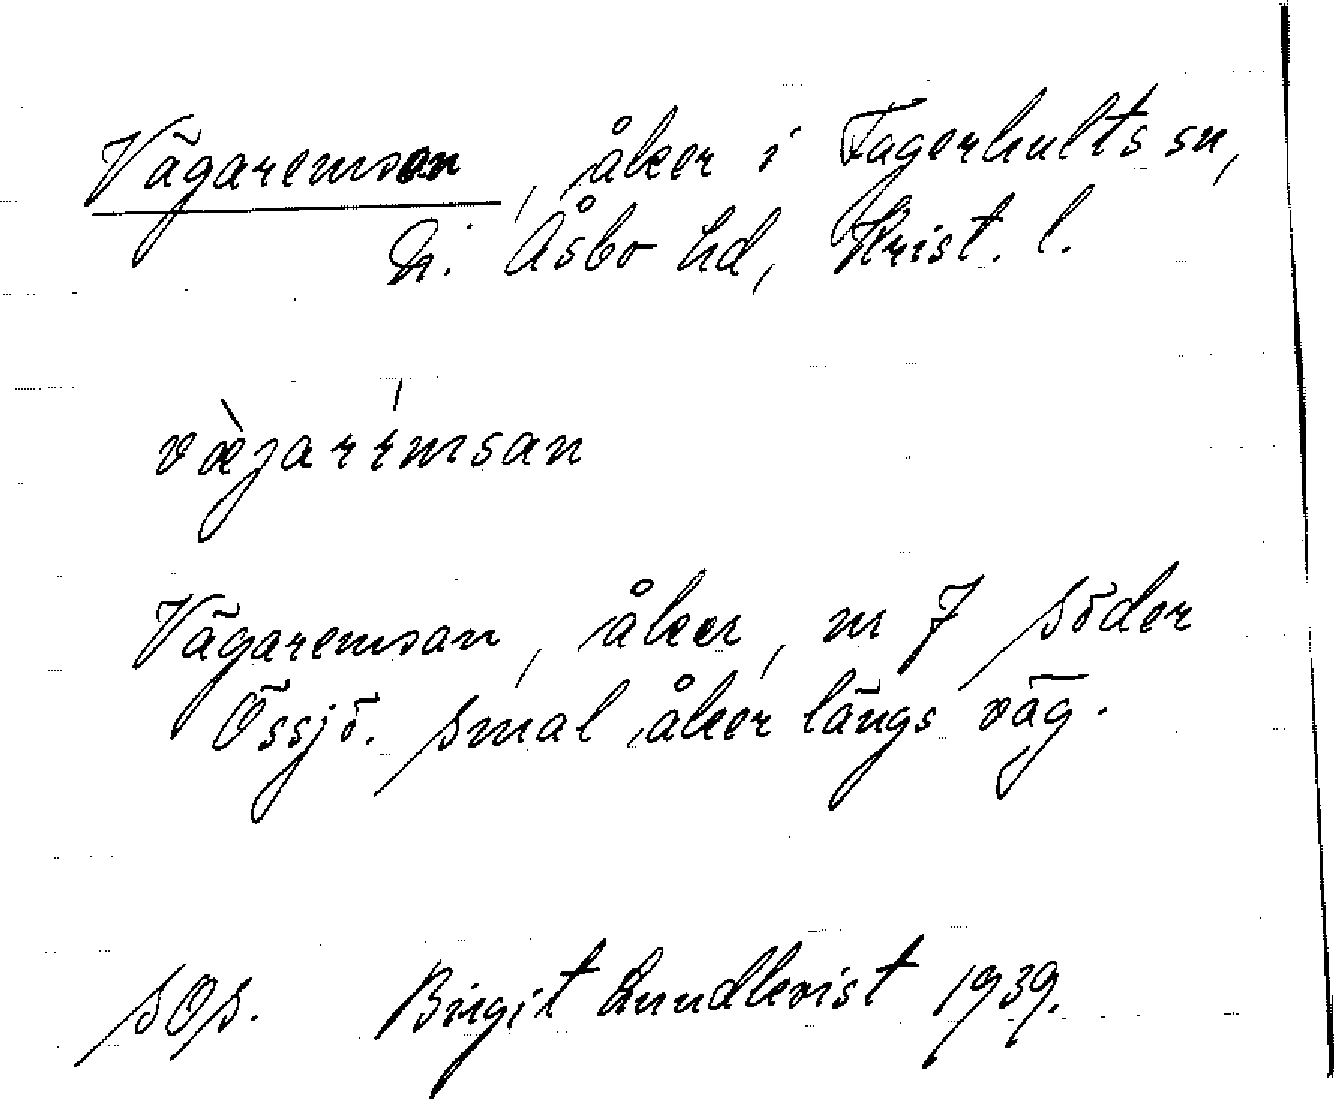 Vägaremsan, åker i Fagerhults sn,
N. Åsbo hd, Krist. l.
vægarimsan
Vägaremsan, åker, nr 7 Söder
Össjö. Smal åker längs väg.
SOS. Birgit Lundkvist 1939.